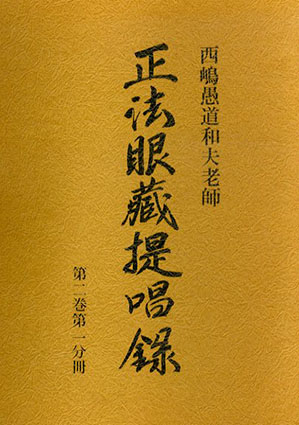 西嶋愚道和夫老師
正法眼藏提唱錄
第二巻第一分冊